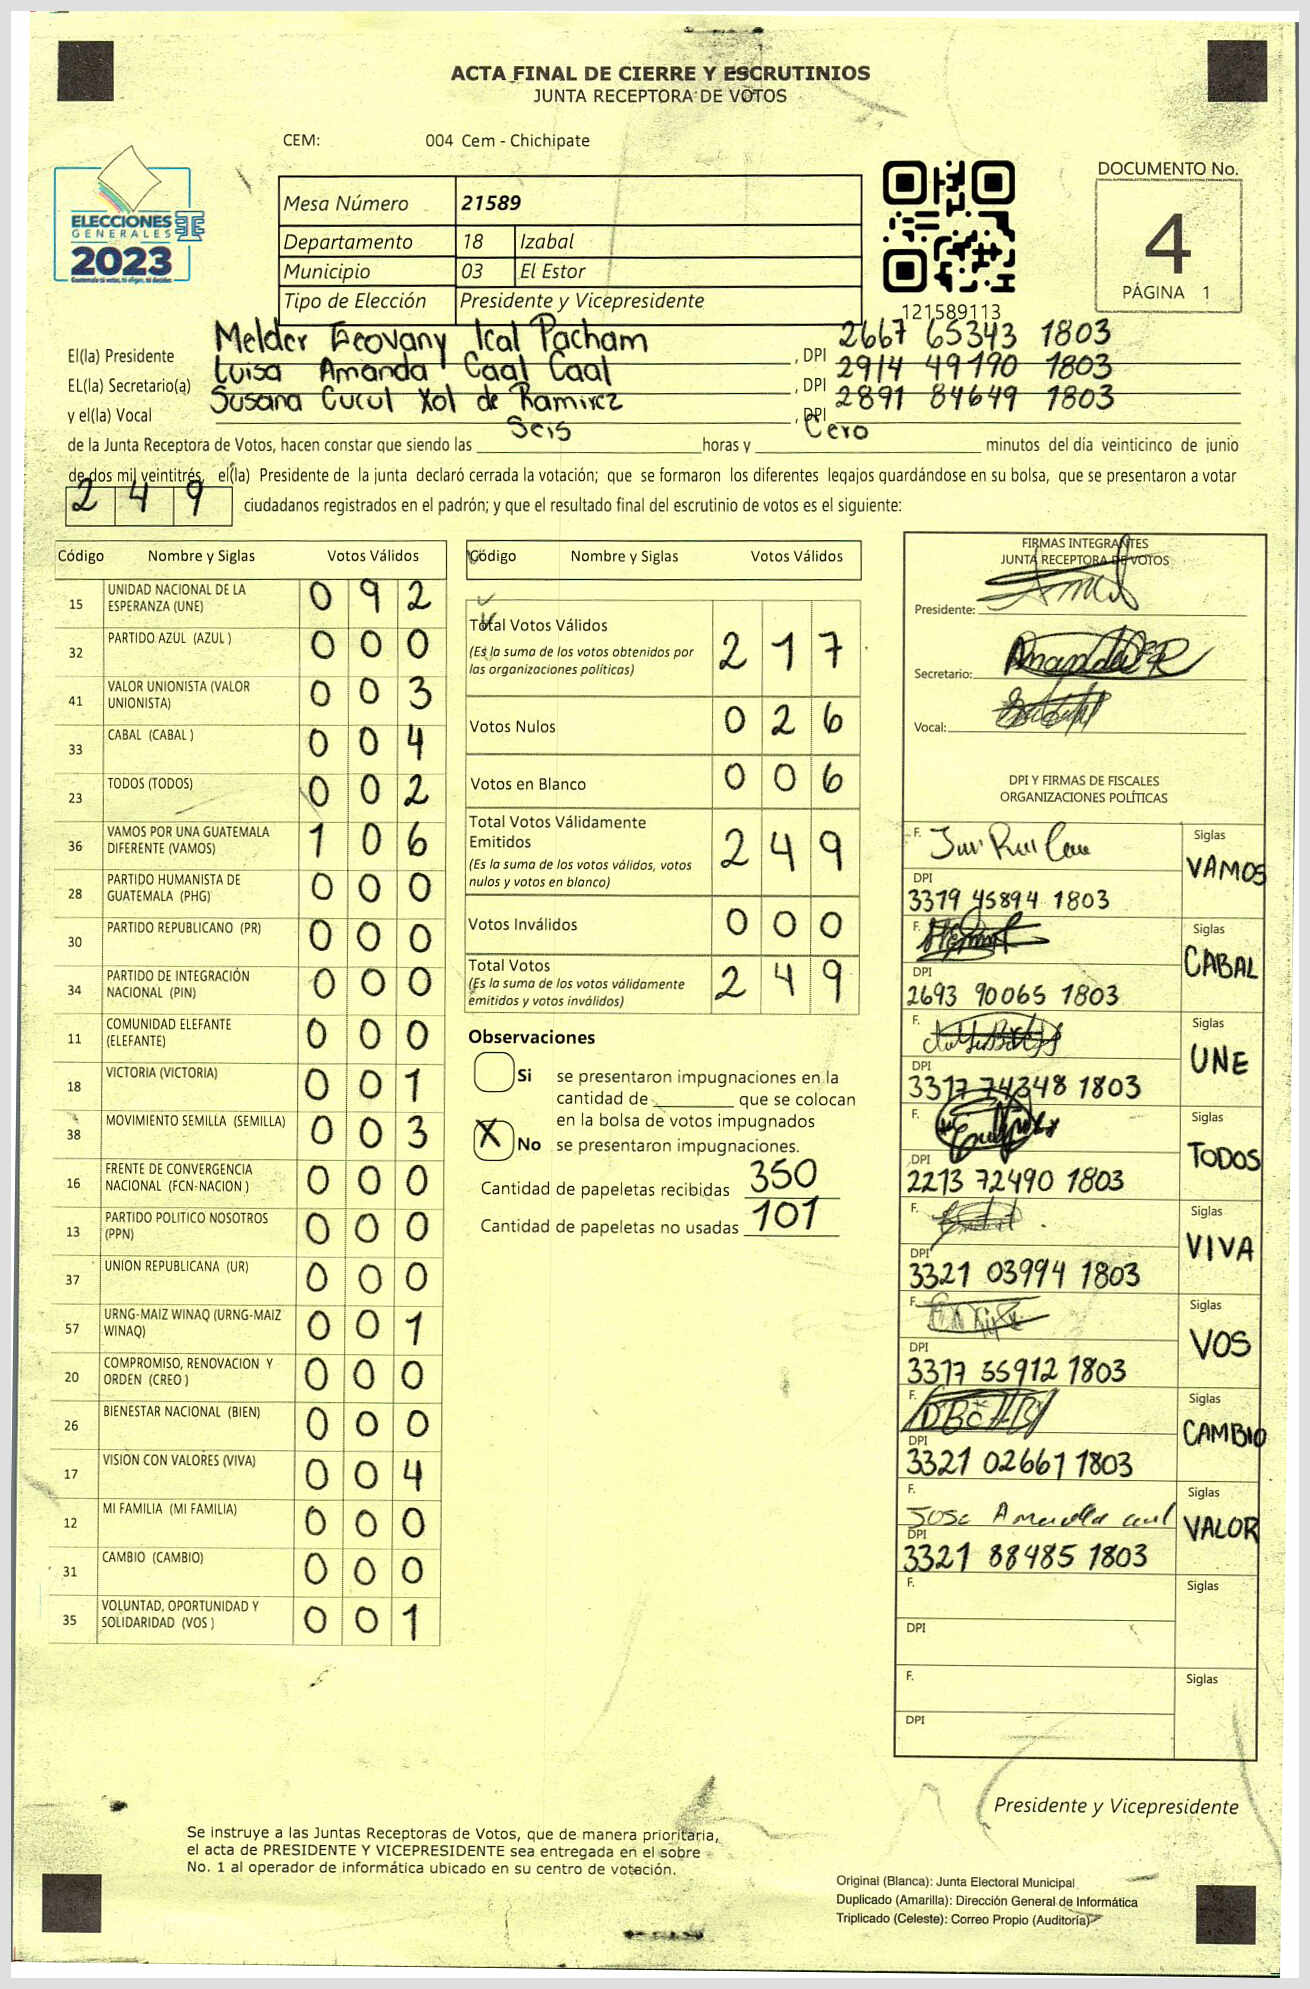 ACTA FINAL DE CIERRE Y ESCRUTINIOS
JUNTA RECEPTORA DE VOTOS
CEM: 004 Cem - Chichipate
ELECCIONES
GENERALES
2023
Guatemala tú votas, tú eliges, tú decides
Mesa Número 21589
Departamento 18 Izabal
Municipio 03 El Estor
Tipo de Elección Presidente y Vicepresidente
121589113
DOCUMENTO No.
4
PÁGINA 1
El(la) Presidente Melder Geovany Ical Pacham , DPI 2667 65343 1803
EL(la) Secretario(a) Luisa Amanda Caal Caal , DPI 2914 49190 1803
y el(la) Vocal Susana Cucul Xol de Ramirez , DPI 2891 84649 1803
de la Junta Receptora de Votos, hacen constar que siendo las Seis horas y Cero minutos del día veinticinco de junio
de dos mil veintitrés, el(la) Presidente de la junta declaró cerrada la votación; que se formaron los diferentes legajos guardándose en su bolsa, que se presentaron a votar
249 ciudadanos registrados en el padrón; y que el resultado final del escrutinio de votos es el siguiente:
Código Nombre y Siglas Votos Válidos
15 UNIDAD NACIONAL DE LA ESPERANZA (UNE) 092
32 PARTIDO AZUL (AZUL ) 000
41 VALOR UNIONISTA (VALOR UNIONISTA) 003
33 CABAL (CABAL ) 004
23 TODOS (TODOS) 002
36 VAMOS POR UNA GUATEMALA DIFERENTE (VAMOS) 106
28 PARTIDO HUMANISTA DE GUATEMALA (PHG) 000
30 PARTIDO REPUBLICANO (PR) 000
34 PARTIDO DE INTEGRACIÓN NACIONAL (PIN) 000
11 COMUNIDAD ELEFANTE (ELEFANTE) 000
18 VICTORIA (VICTORIA) 001
38 MOVIMIENTO SEMILLA (SEMILLA) 003
16 FRENTE DE CONVERGENCIA NACIONAL (FCN-NACION ) 000
13 PARTIDO POLITICO NOSOTROS (PPN) 000
37 UNION REPUBLICANA (UR) 000
57 URNG-MAIZ WINAQ (URNG-MAIZ WINAQ) 001
20 COMPROMISO, RENOVACION Y ORDEN (CREO ) 000
26 BIENESTAR NACIONAL (BIEN) 000
17 VISION CON VALORES (VIVA) 004
12 MI FAMILIA (MI FAMILIA) 000
31 CAMBIO (CAMBIO) 000
35 VOLUNTAD, OPORTUNIDAD Y SOLIDARIDAD (VOS ) 001
Código Nombre y Siglas Votos Válidos
Total Votos Válidos 217
(Es la suma de los votos obtenidos por
las organizaciones políticas)
Votos Nulos 026
Votos en Blanco 006
Total Votos Válidamente
Emitidos 249
(Es la suma de los votos válidos, votos
nulos y votos en blanco)
Votos Inválidos 000
Total Votos 249
(Es la suma de los votos válidamente
emitidos y votos inválidos)
Observaciones
Si se presentaron impugnaciones en la
cantidad de ______ que se colocan
en la bolsa de votos impugnados
X No se presentaron impugnaciones.
Cantidad de papeletas recibidas 350
Cantidad de papeletas no usadas 101
FIRMAS INTEGRANTES
JUNTA RECEPTORA DE VOTOS
Presidente:
Secretario:
Vocal:
DPI Y FIRMAS DE FISCALES
ORGANIZACIONES POLÍTICAS
F. Siglas
VAMOS
DPI
3379 45894 1803
F. Siglas
CABAL
DPI
2693 90065 1803
F. Siglas
UNE
DPI
3317 74348 1803
F. Siglas
TODOS
DPI
2213 72490 1803
F. Siglas
VIVA
DPI
3321 03994 1803
F. Siglas
VOS
DPI
3317 55912 1803
F. Siglas
CAMBIO
DPI
3321 02661 1803
F. Siglas
VALOR
DPI
3321 88485 1803
F. Siglas
DPI
F. Siglas
DPI
Presidente y Vicepresidente
Se instruye a las Juntas Receptoras de Votos, que de manera prioritaria,
el acta de PRESIDENTE Y VICEPRESIDENTE sea entregada en el sobre
No. 1 al operador de informática ubicado en su centro de votación.
Original (Blanca): Junta Electoral Municipal
Duplicado (Amarilla): Dirección General de Informática
Triplicado (Celeste): Correo Propio (Auditoría)